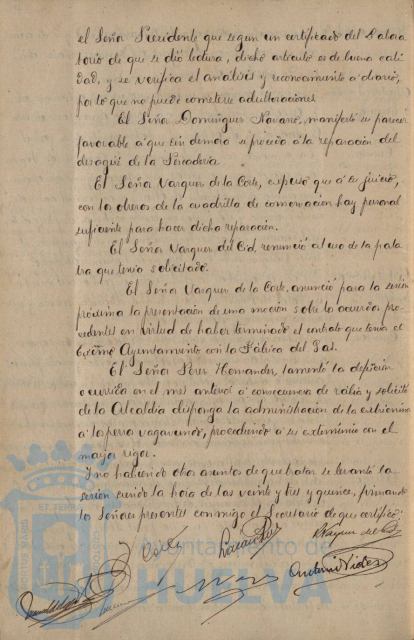 el Señor Presidente que segun un certificado del Labora
torio de que se dió lectura, dicho articulo es de buena cali
dad, y se verifica el análisis y reconocimiento a diario,
por lo que no puede cometerse adulteraciones
El Señor Dominguez Navarro, manifestó su parecer
favorable a que sin demora se proceda á la reparación del
desagüe de la Pescaderia
El Señor Vazquez de la Corte, expuso que á su juicio,
con los obreros de la cuadrilla de conservacion hay personal
suficiente para hacer dicha reparación.
El Señor Vazquez del Cid, renunció al uso de la pala
bra que tenia solicitado.
El Señor Vazquez de la Corte anunció para la sesión
próxima la presentación de una moción sobre los acuerdos pro
cedentes en virtud de haber terminado el contrato que tenia el
Excmo Ayuntamiento con la Fábrica del Gas.
El Señor Perez Hernandez, lamentó la defunción
ocurrida en el mes anterior á consecuencia de rabia y solicitó
de la Alcaldia disponga la administración de la estricnina
á los perros vagabundos, procediendo á su exterminio con el
mayor rigor.
Y no habiendo otros asuntos de que tratar se levantó la
sesión siendo la hora de las veinte y tres y quince, firmando
los Señores presentes conmigo el Secretario de que certifico.
Vazquez del Cid
Antonio Vides
Ayuntamiento de
HUELVA